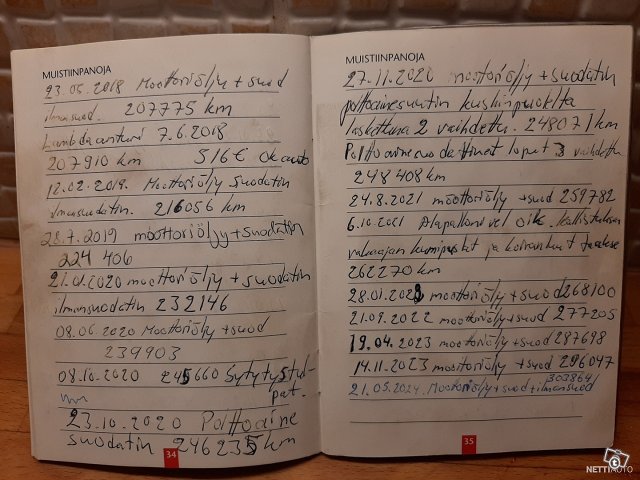 MUISTIINPANOJA
23.05.2018 Moottoriöljy + suod
ilmansuod. 207775 km
Lambda anturi 7.6.2018
207910 km 516€ Ok auto
12.02.2019. Moottoriöljy Suodatin
ilmansuodatin. 216056 km
28.7.2019 moottoriöljy + suodatin
224 406
21.01.2020 moottoriöljy + suodatin
ilmansuodatin 232146
08.06.2020 Moottoriöljy + suod
239903
08.10.2020 245660 Sytytystul-
pat.
23.10.2020 Polttoaine
suodatin 246235 km
34
MUISTIINPANOJA
27.11.2020 moottoriöljy + suodatin
polttoainesuutin kuskinpuolelta
laskettuna 2 vaihdettu. 248071 km
loput 3 vaihdettu
248 408 km
24.8.2021 moottoriöljy + suod 259782
6.10.2021 Alapallonivel oik. kallistuksen
vakaajan kumipuslat ja koiranluut taakse
262270 km
28.01.2022 moottoriöljy + suod 268100
21.09.2022 moottoriöljy + suod 277205
19.04.2023 moottoriöljy + suod 287698
14.11.2023 moottoriöljy + suod 296047
303864
21.05.2024. Moottoriöljy + suod + ilmansuod
35
NETTIMOTO